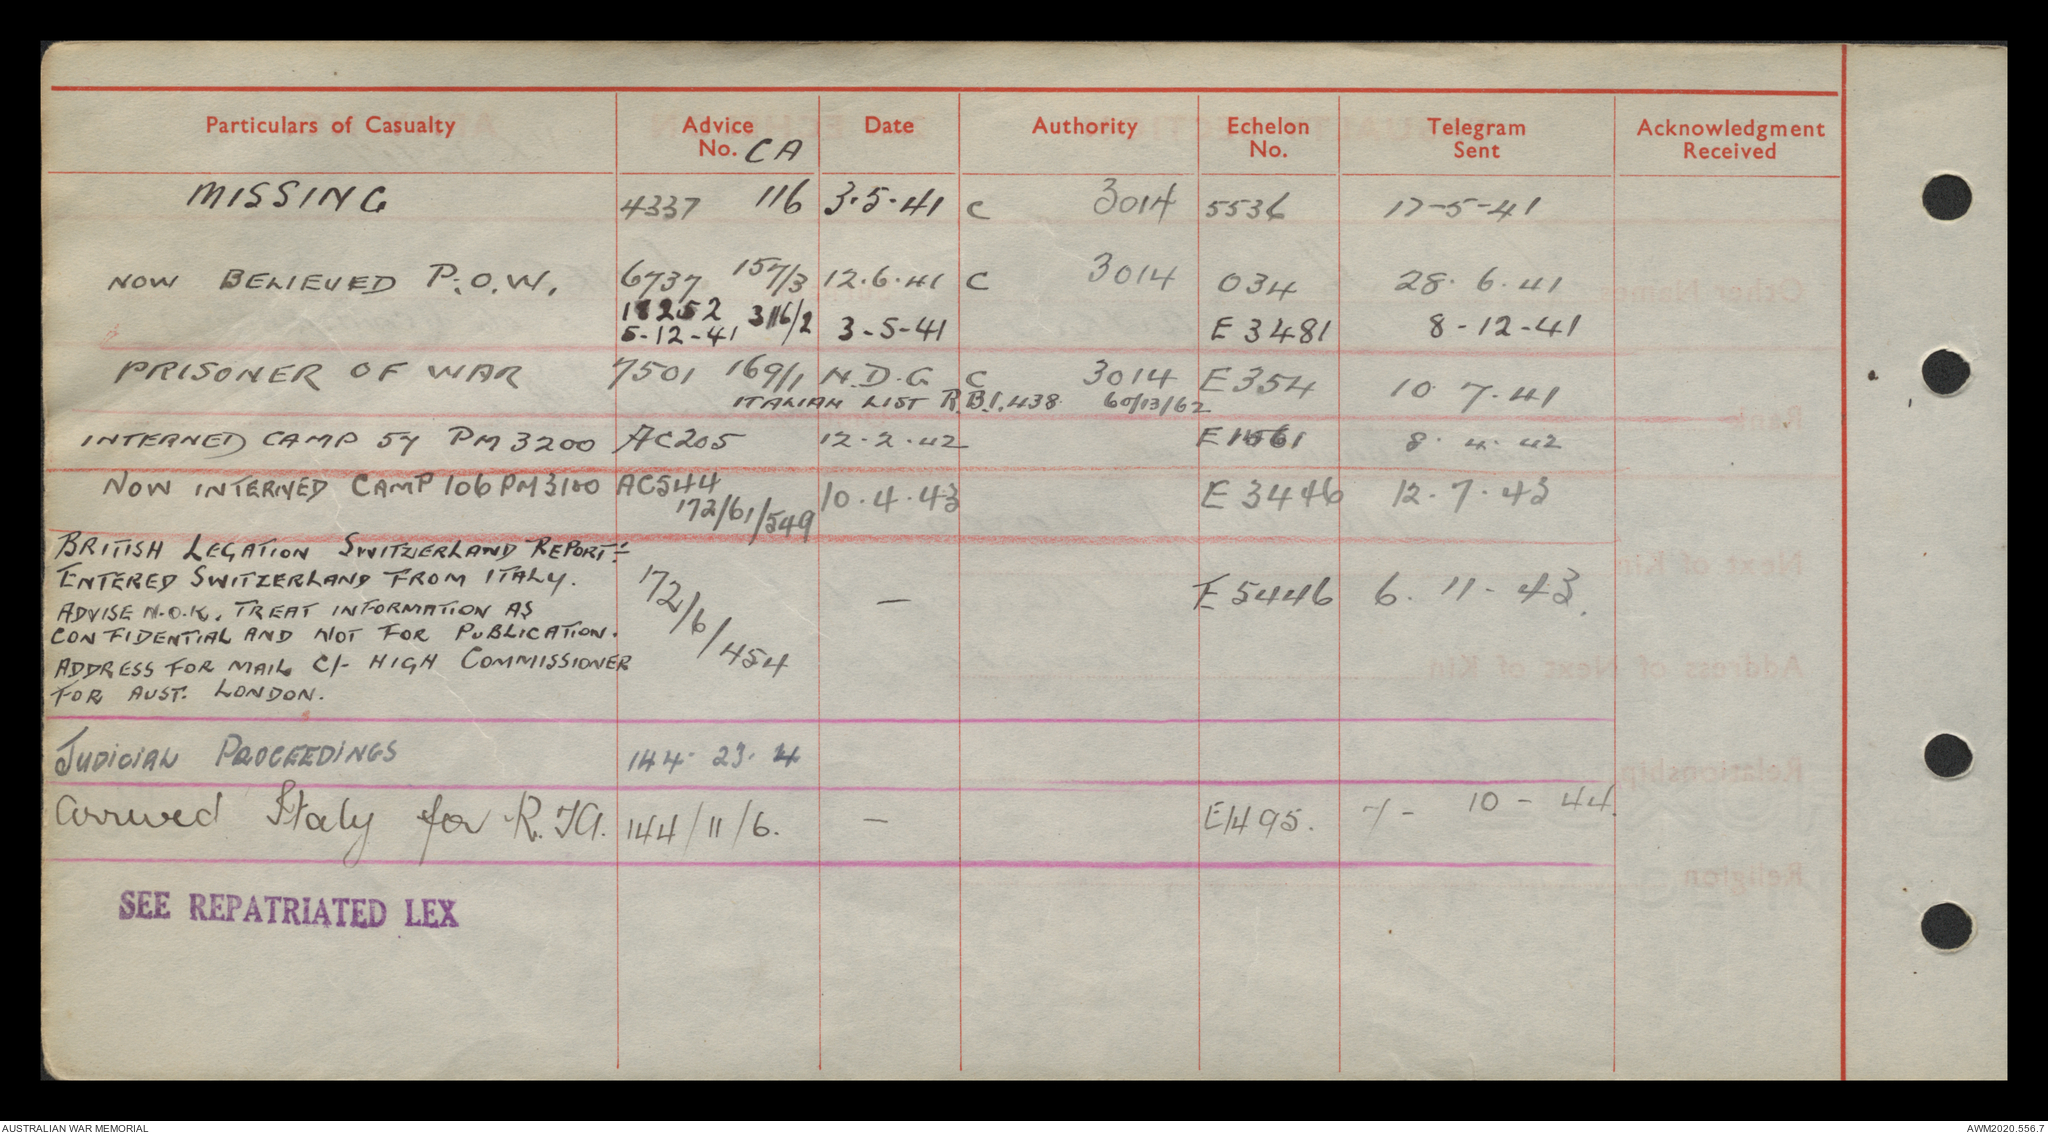 Particulars of Casualty Advice No. CA Date Authority Echelon No. Telegram Sent Acknowledgment Received
MISSING 4337 116 3.5.41 C 3014 5536 17-5-41
NOW BELIEVED P.O.W. 6737 157/3 12.6.41 C 3014 034 28.6.41
18252 316/2
5-12-41 3-5-41 E 3481 8-12-41
PRISONER OF WAR 7501 169/1 N.D.G C 3014 E354 10 7.41
ITALIAN LIST R.B.1.438 60/13/62
INTERNED CAMP 57 PM 3200 AC205 12.2.42 8.4.42
NOW INTERNED CAMP 106 PM 3100 AC544 10.4.43 E 3446 12.7.43
172/61/549
BRITISH LEGATION SWITZERLAND REPORT:-
ENTERED SWITZERLAND FROM ITALY. 172/6/454 — E 5446 6.11-43.
ADVISE N.O.K. TREAT INFORMATION AS
CONFIDENTIAL AND NOT FOR PUBLICATION.
ADDRESS FOR MAIL C/- HIGH COMMISSIONER
FOR AUST. LONDON.
JUDICIAL PROCEEDINGS 144. 23. 4
arrived Italy for R.TA. 144/11/6. — E1495. 7-10-44.
SEE REPATRIATED LEX
AUSTRALIAN WAR MEMORIAL AWM2020.556.7